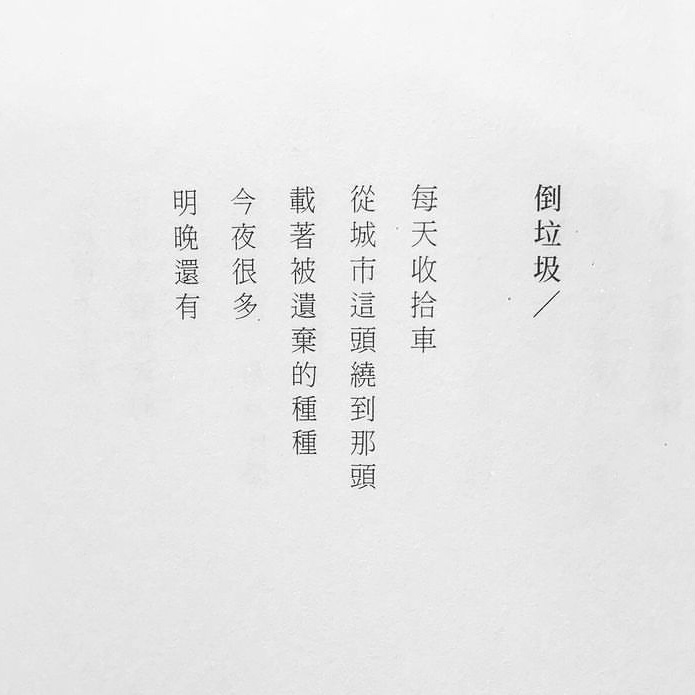 倒垃圾／
每天收拾車
從城市這頭繞到那頭
載著被遺棄的種種
今夜很多
明晚還有